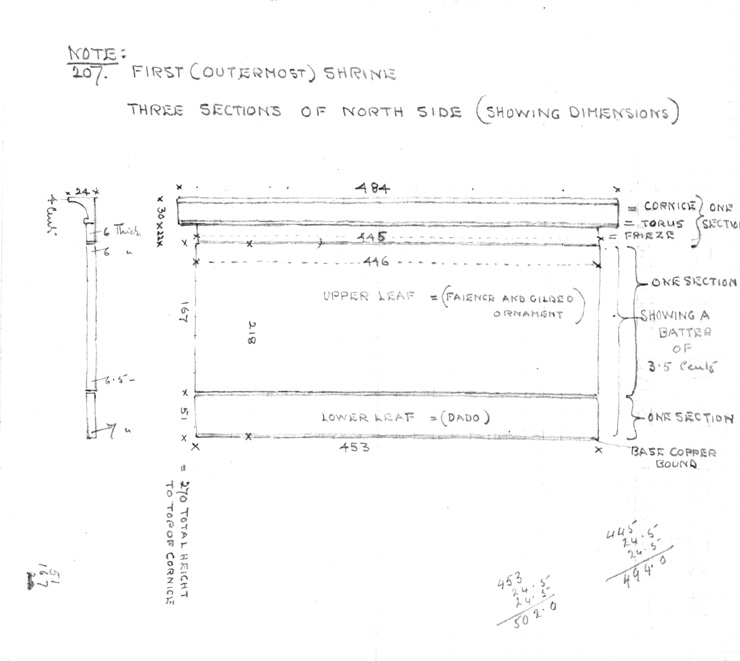 NOTE:
207. FIRST (OUTERMOST) SHRINE
THREE SECTIONS OF NORTH SIDE (SHOWING DIMENSIONS)
24
4 Cents
6 Thick
6 "
6.5 "
7 "
484
30 x 22
= CORNICE
= TORUS
= FRIEZE
ONE
SECTION
445
446
UPPER LEAF = (FAIENCE AND GILDED
ORNAMENT)
167
218
ONE SECTION
SHOWING A
BATTER
OF
3.5 Cents
51
LOWER LEAF = (DADO)
ONE SECTION
453
BASE COPPER
BOUND
= 270 TOTAL HEIGHT
TO TOP OF CORNICE
51
167
453
24.5
24.5
502.0
445
24.5
24.5
494.0